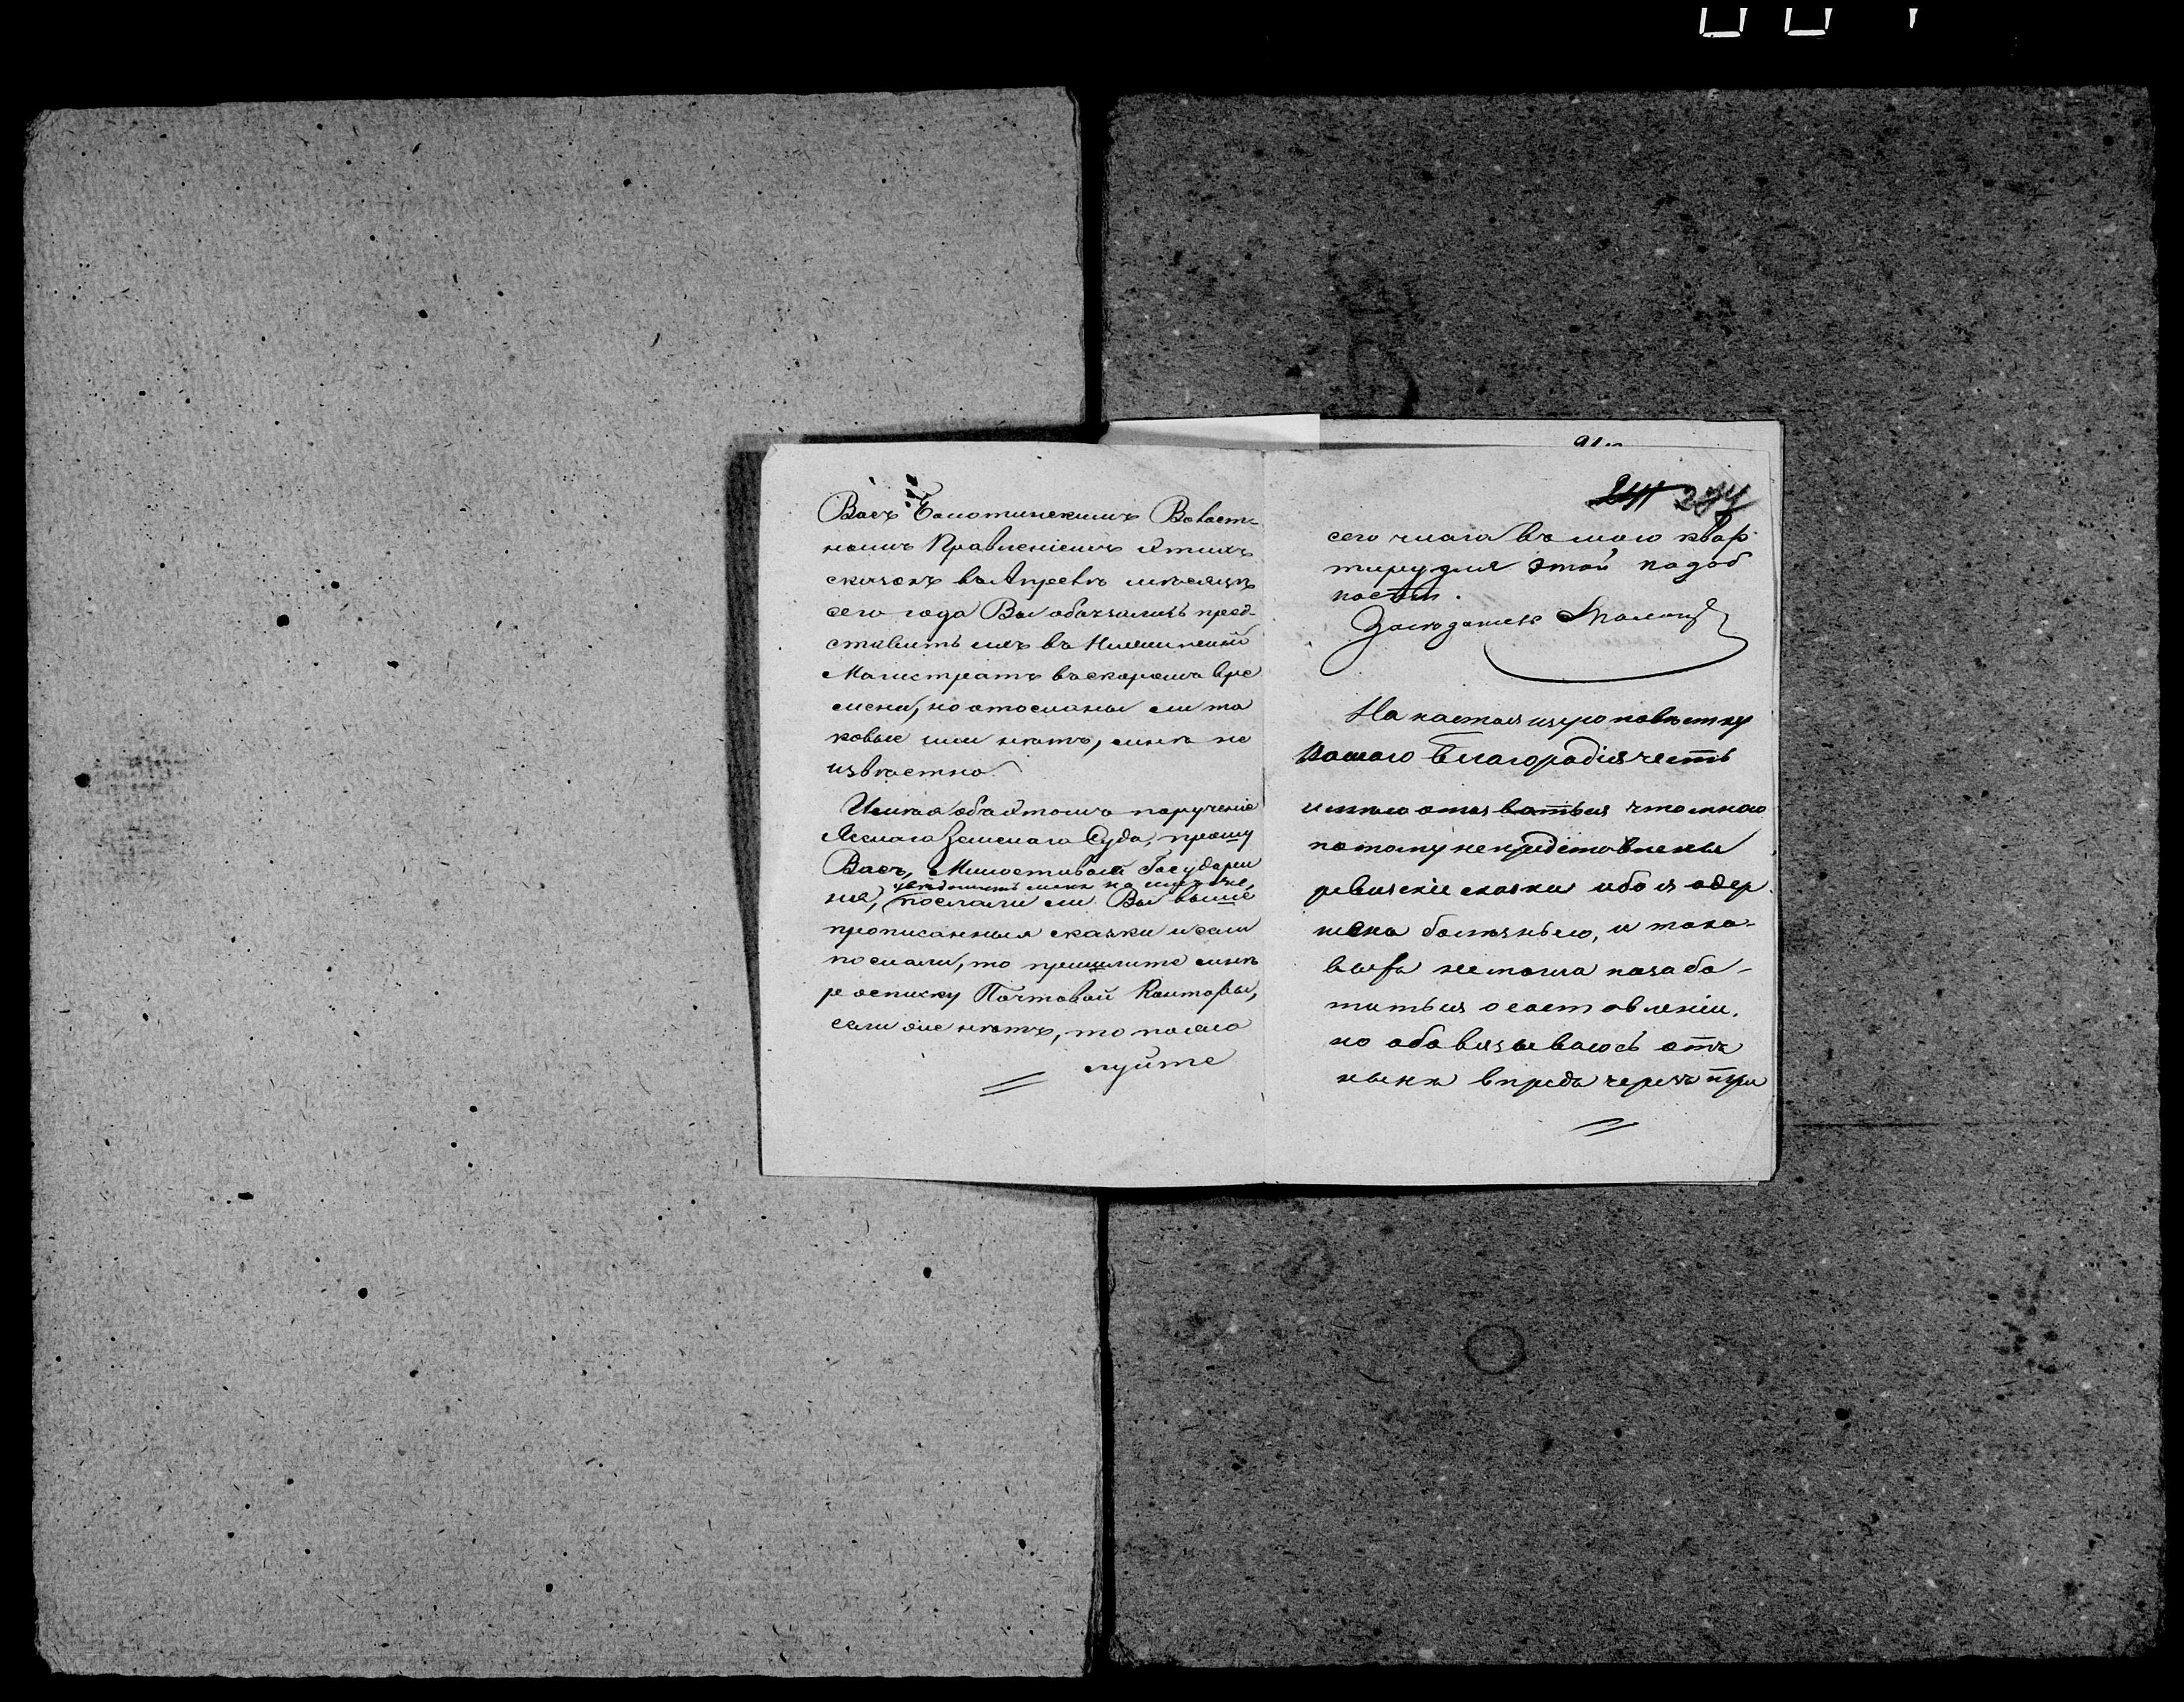 Васъ Болотинскимъ Воласт-
нымъ Правленіемъ этихъ
сказокъ въ Апрелѣ мѣсяцѣ
сего года Вы обязались пред-
ставить ихъ въ
Магистратъ въ скоромъ вре
мени, но отосланы ли та
ковые или нѣтъ, мнѣ не
извѣстно.
Имѣя объ этомъ порученіе
Земскаго Суда, прошу
Васъ, Милостивая Государы
ня, увѣдомить меня на
послали ли Вы выше
прописанныя сказки и если
послали, то пришлите мнѣ
росписку Почтовой Конторы,
если же нѣтъ, то пожа
луйте
277
сего числа въ мою квар
тиру для этой надоб
ности.
Засѣдатель
На настоящую повѣстку
Вашего Благородія честь
имѣю отозваться что мною
потому непредставлены
ревизскіе сказки ибо я одер
жена болѣзнью, и тако-
выхъ не могла позабо-
титься о составленіи.
но обовязываюсь отъ
нынѣ впредь черезъ три